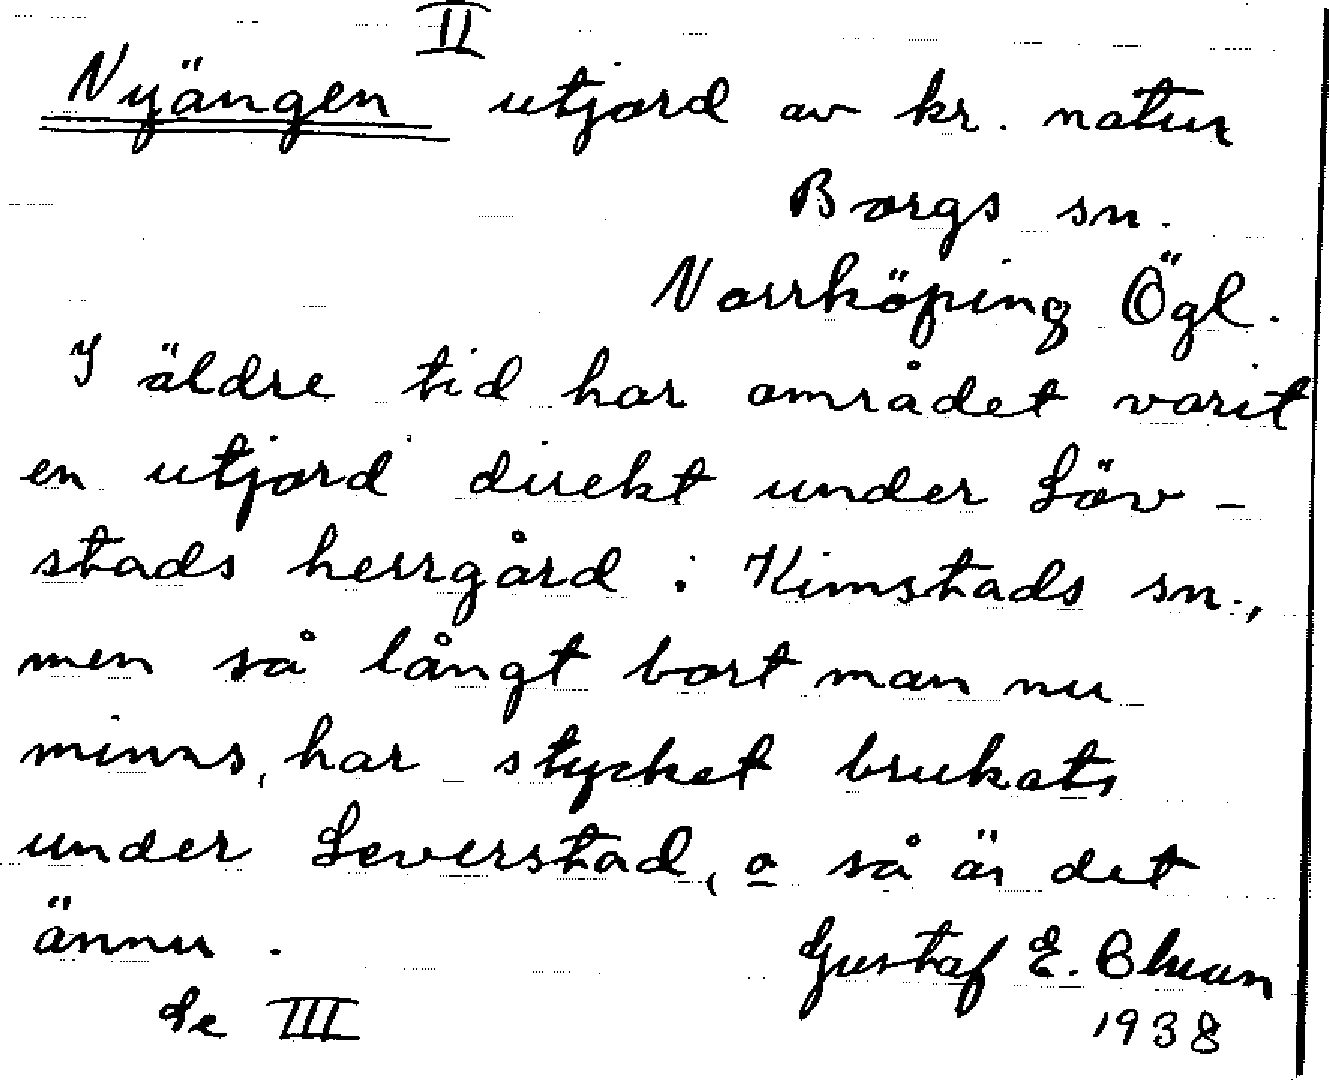 II
Nyängen utjord av kr. natur
Borgs sn.
Norrköping Ögl.
I äldre tid har området varit
en utjord direkt under Löv-
stads herrgård i Kimstads sn.,
men så långt bort man nu
minns, har stycket brukats
under Leverstad, o så är det
ännu.
Gustaf E.
Se III
1938